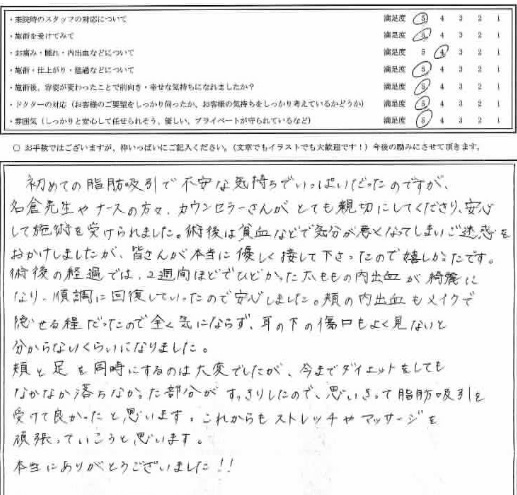 ・来院時のスタッフの対応について 満足度 5 4 3 2 1
・施術を受けてみて 満足度 5 4 3 2 1
・お痛み・腫れ・内出血などについて 満足度 5 4 3 2 1
・施術・仕上がり・経過などについて 満足度 5 4 3 2 1
・施術後、容姿が変わったことで前向き・幸せな気持ちになれましたか? 満足度 5 4 3 2 1
・ドクターの対応(お客様のご要望をしっかり伺ったか、お客様の気持ちをしっかり考えているかどうか) 満足度 5 4 3 2 1
・雰囲気(しっかりと安心して任せられそう、優しい、プライベートが守られているなど) 満足度 5 4 3 2 1
○ お手数ではございますが、枠いっぱいにご記入ください。(文章でもイラストでも大歓迎です!)今後の励みにさせて頂きます。
初めての脂肪吸引で不安な気持ちでいっぱいだったのですが、
名倉先生やナースの方々、カウンセラーさんがとても親切にしてくださり、安心
して施術を受けられました。術後は貧血などで気分が悪くなってしまいご迷惑を
おかけしましたが、皆さんが本当に優しく接して下さったので嬉しかったです。
術後の経過では、2週間ほどでひどかった太ももの内出血が綺麗に
なり、順調に回復していったので安心しました。頬の内出血もメイクで
隠せる程だったので全く気にならず、耳の下の傷口もよく見ないと
分からないくらいになりました。
頬と足を同時にするのは大変でしたが、今までダイエットをしても
なかなか落ちなかった部分がすっきりしたので、思いきって脂肪吸引を
受けて良かったと思います。これからもストレッチやマッサージを
頑張っていこうと思います。
本当にありがとうございました!!